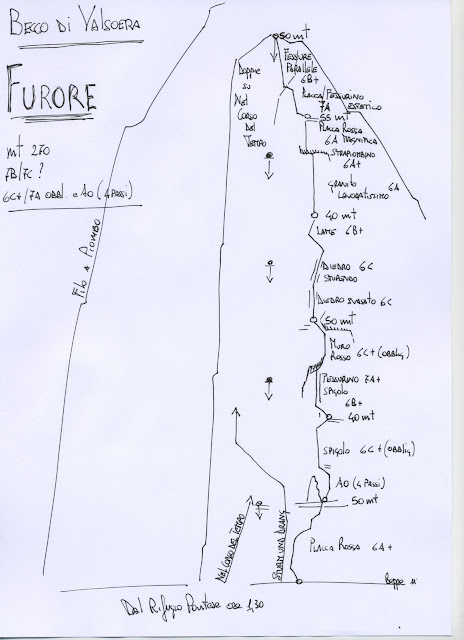 BECCO DI VALSOERA
FURORE
mt 270
7B/7C ?
6C+/7A OBBL. e A0 (4 PASSI)
FILO A PIOMBO
50 mt
DOPPIE
SU
NEL
CORSO
DEL
TEMPO
FESSURE
PARALLELE
6B+
PLACCA FESSURINO
7A ESTETICO
55 mt
PLACCA ROSSA
6A MAGNIFICA
STRAPIOMBINO
6A+
GRANITO 6A
LAVORATISSIMO
40 mt
LAME 6B+
DIEDRO 6C
STUPENDO
DIEDRO SVASATO 6C
50 mt
MURO
ROSSO 6C+ (OBBLIG)
FESSURINO 7A+
SPIGOLO
6B+
40 mt
SPIGOLO 6C+ (OBBLIG)
A0 (4 PASSI)
50 mt
NEL CORSO DEL TEMPO
STURM UND DRANG
PLACCA ROSSA 6A+
Dal Rifugio Pontese ore 1,30